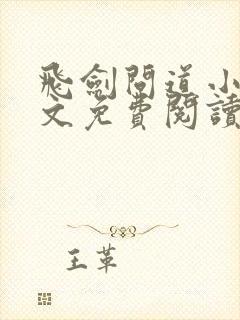 飛劍問道小
文免費閱讀
王革